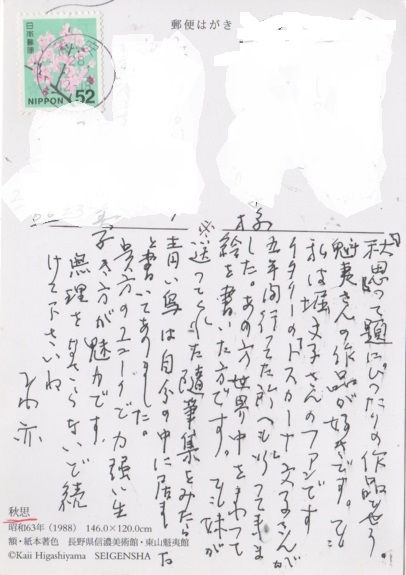 郵便はがき
日本郵便
NIPPON 52
様
「秋思」って題にぴったりの作品でせう
魁夷さんの作品が好きです。でも
私は堀文子さんのファンです
イタリーのトスカーナ文子さんが
五年間行ってた所へも行ってきま
した。あの方世界中をまわって
絵を書いた方です。妹が
送ってくれた随筆集をみたら
青い鳥は自分の中に居ます
と書いてありました。
貴方のユニークで力強い生
き方が魅力です。
無理をなさらないで続
けて下さいね
秋思
昭和63年(1988) 146.0×120.0cm
額・紙本著色 長野県信濃美術館・東山魁夷館
©Kaii Higashiyama SEIGENSHA